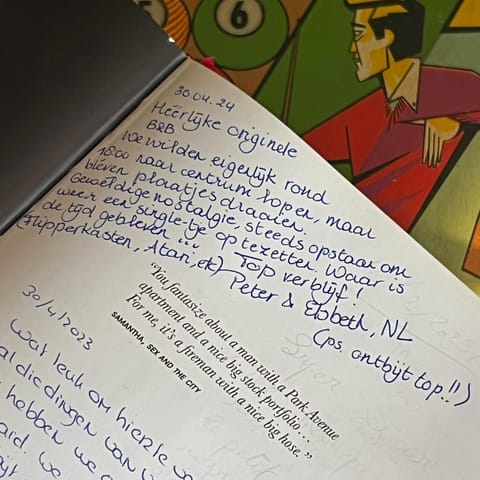 6
30.04.24
Heerlijke originele
B&B
We wilden eigenlijk rond
1800 naar centrum lopen, maar
bleven plaatjes draaien.
Geweldige nostalgie, steeds opstaan om
weer een singletje op te zetten. Waar is
de tijd gebleven ... Top verblijf!
(Flipperkasten, Atari, etc)
Peter & Ebbeth, NL
(ps. ontbijt top!!)
"You fantasize about a man with a Park Avenue
apartment and a nice big stock portfolio...
For me, it's a fireman with a nice big hose."
SAMANTHA, SEX AND THE CITY
30/4/2023
Wat leuk om hier
al die dingen van
hebben we